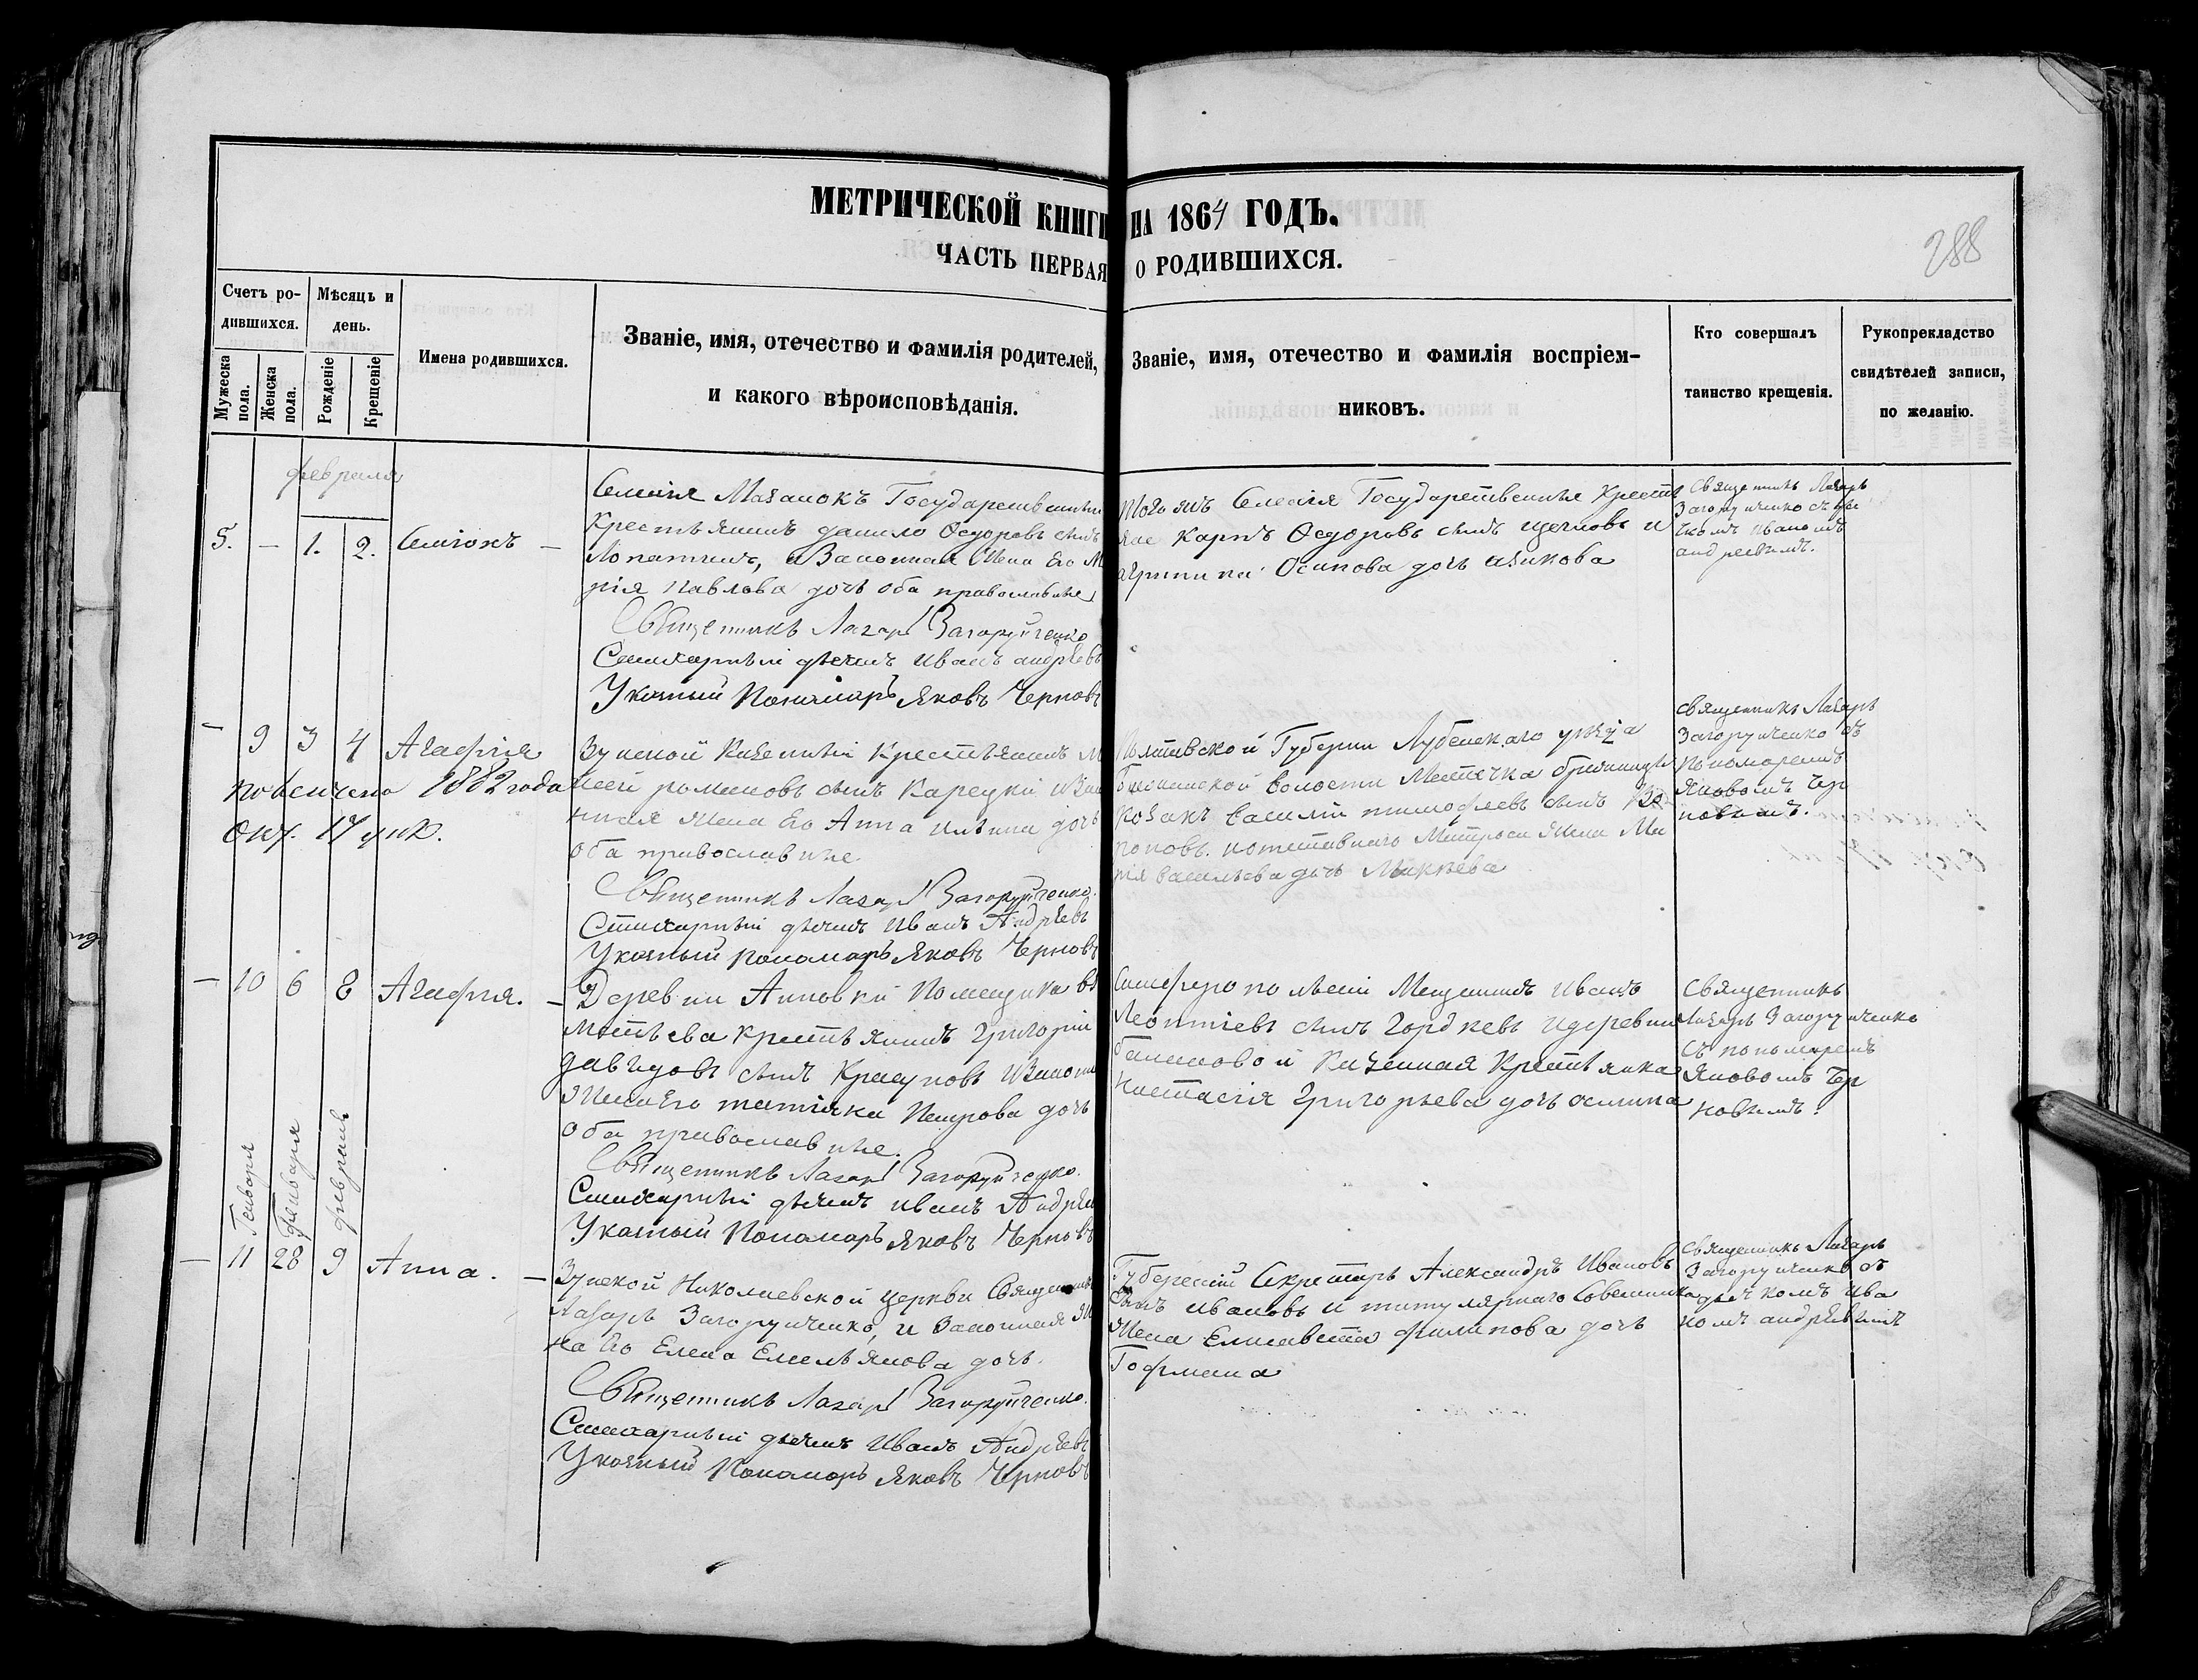 МЕТРИЧЕСКОЙ КНИГИ НА 1864 ГОДЪ.
ЧАСТЬ ПЕРВАЯ О РОДИВШИХСЯ.
288
Счетъ родившихся.
Мѣсяцъ и день.
Мужеска пола.
Женска пола.
Рожденіе
Крещеніе
Имена родившихся.
Званіе, имя, отечество и фамилія родителей,
и какого вѣроисповѣданія.
Званіе, имя, отечество и фамилія воспріем-
никовъ.
Кто совершалъ
таинство крещенія.
Рукоприкладство
свидѣтелей записи,
по желанію.
февраля
5. — 1. 2. Симіонъ —
Селенія Мазанокъ Государственный
Крестьянинъ данило Ѳедоровъ сынъ
Лопатинъ, и Законная Жена Его М
рія Павлова дочь оба православные
Священникъ Лазарь Загоруйченко
Стихарный дьячекъ Иванъ андрѣевъ
Указный Пономарь Яковъ Черновъ
того жъ Селенія Государственные Крестья
не Карпъ Ѳедоровъ сынъ и
агрипина Осипова дочь
Священникъ Лазарь
Загоруйченко съ дья
чкомъ Иваномъ
андреевымъ.
— 9 3 4 Агафія
повенчена 1882 года
Окт. 17 дня.
Зуйской Казенный Крестьянинъ М
сей романовъ сынъ Карецкій и Зако
нная Жена Его Анна Ильина дочь
оба православные.
Священникъ Лазарь Загоруйченко.
Стихарный дьячекъ Иванъ Андрѣевъ
Указный пономарь Яковъ Черновъ
Полтавской Губерніи Лубенскаго уѣзда
волости Местечка
Козакъ Василій тимофеевъ сынъ
поповъ. и отставнаго Матроса Жена Ма
рія Васильева дочь
Священникъ Лазарь
Загоруйченко съ
Пономаремъ
Яковомъ Чер
новымъ.
— 10 6 8 Агафія. —
Деревни Анновки Помещика
Крестьянинъ Григорій
давидовъ сынъ Красуновъ и Законн
Жена Его татіяна Петрова дочь
оба православные.
Священникъ Лазарь Загоруйченко.
Стихарный дьячекъ иванъ Андрѣев
Указный Пономарь Яковъ Черновъ
Симферопольскій Мещанинъ Иванъ
Леонтіевъ сынъ Гордѣевъ и деревни
Казенная Крестьянка
Настасія Григорьева дочь
Священникъ
Лазарь Загоруйченко
съ пономаремъ
Яковомъ Чер
новымъ.
Генваря
Генваря
февраля
— 11 28 9 Анна. —
Зуйской Николаевской церкви Священникъ
Лазарь Загоруйченко, и Законная Же
на Его Елена Емельянова дочь.
Священникъ Лазарь Загоруйченко.
Стихарный дьячекъ Иванъ Андрѣевъ
Указный Пономарь Яковъ Черновъ
Губернскій Секретарь Александръ Ивановъ
сынъ Ивановъ и титулярнаго Советника
Жена Елисавета филипова дочь
Гофмана
Священникъ Лазарь
Загоруйченко съ
дьячкомъ Ива
номъ андрѣевымъ